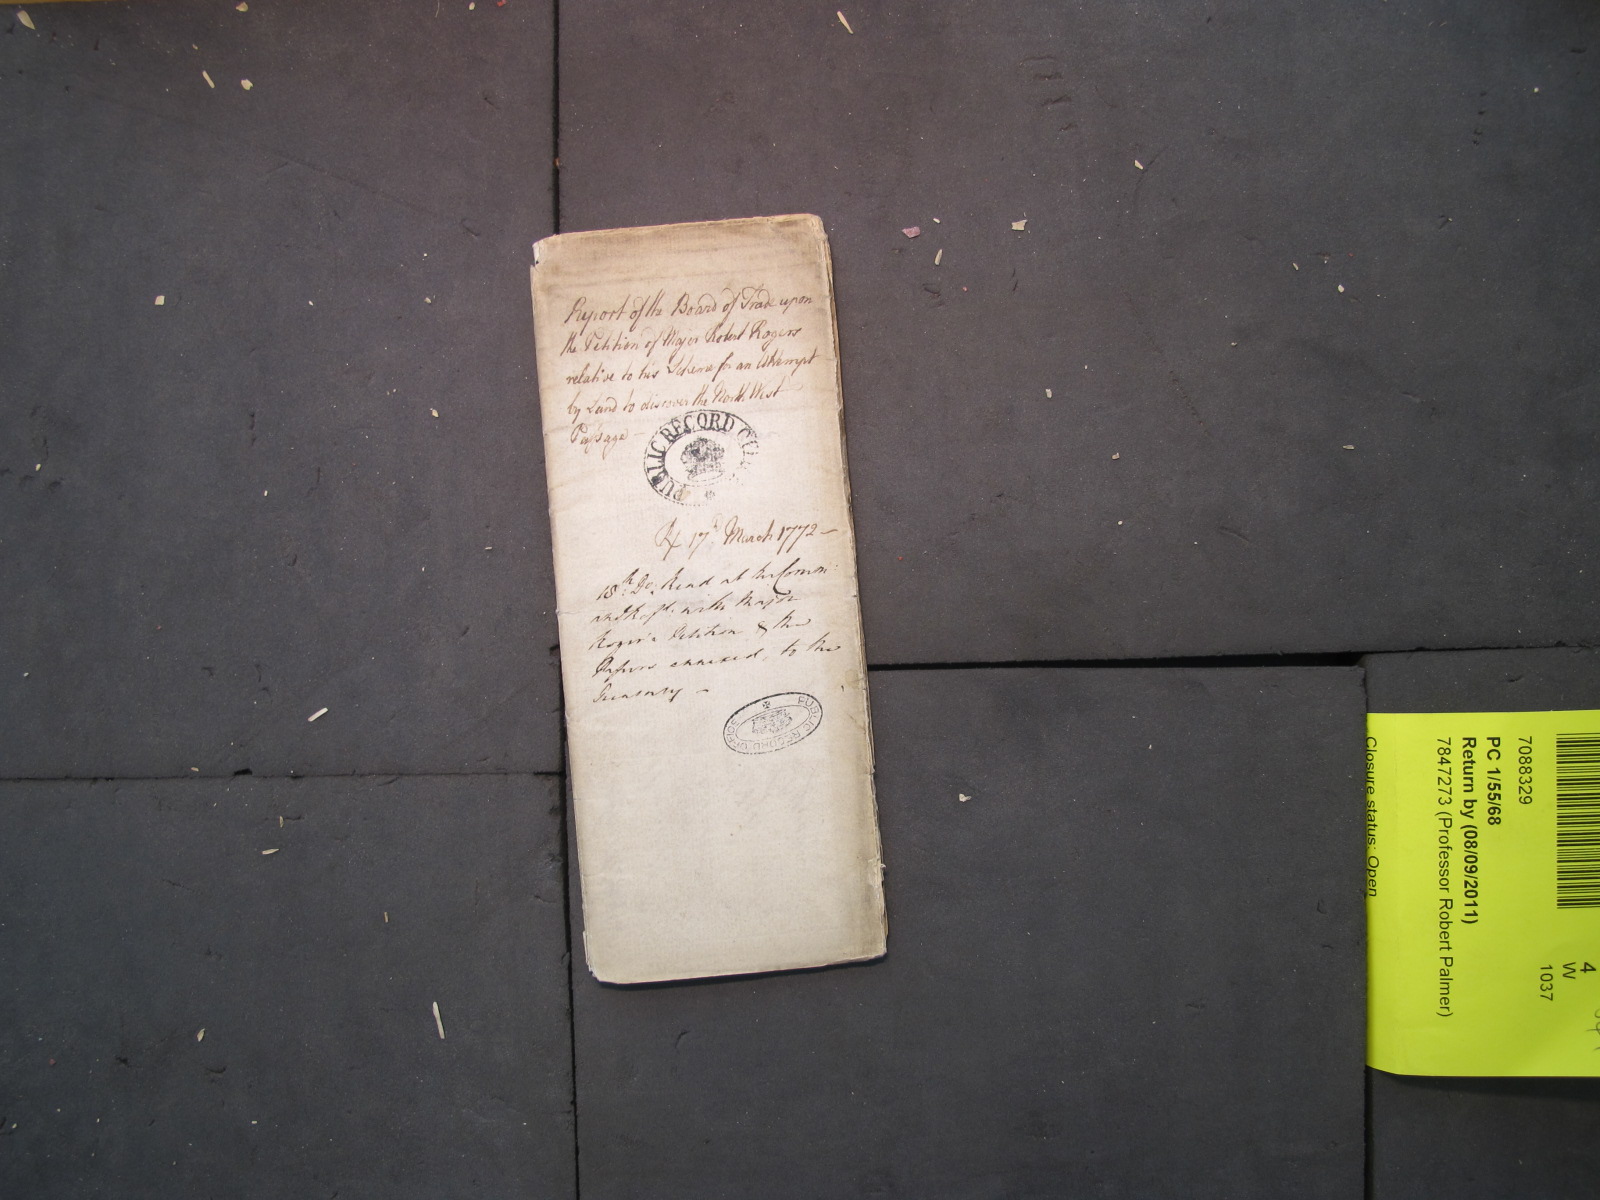 Report of the Board of Trade upon
the Petition of Major Robert Rogers
relative to his Scheme for an Attempt
by Land to discover the North West
Passage —
PUBLIC RECORD
17th March 1772 —
18th Do. Read at the Comm
with Major
Roger's Petition & the
Papers annexed, to the
Treasury —
PUBLIC RECORD OFFICE
7088329
PC 1/55/68
Return by (08/09/2011)
7847273 (Professor Robert Palmer)
Closure status: Open
4
W
1037